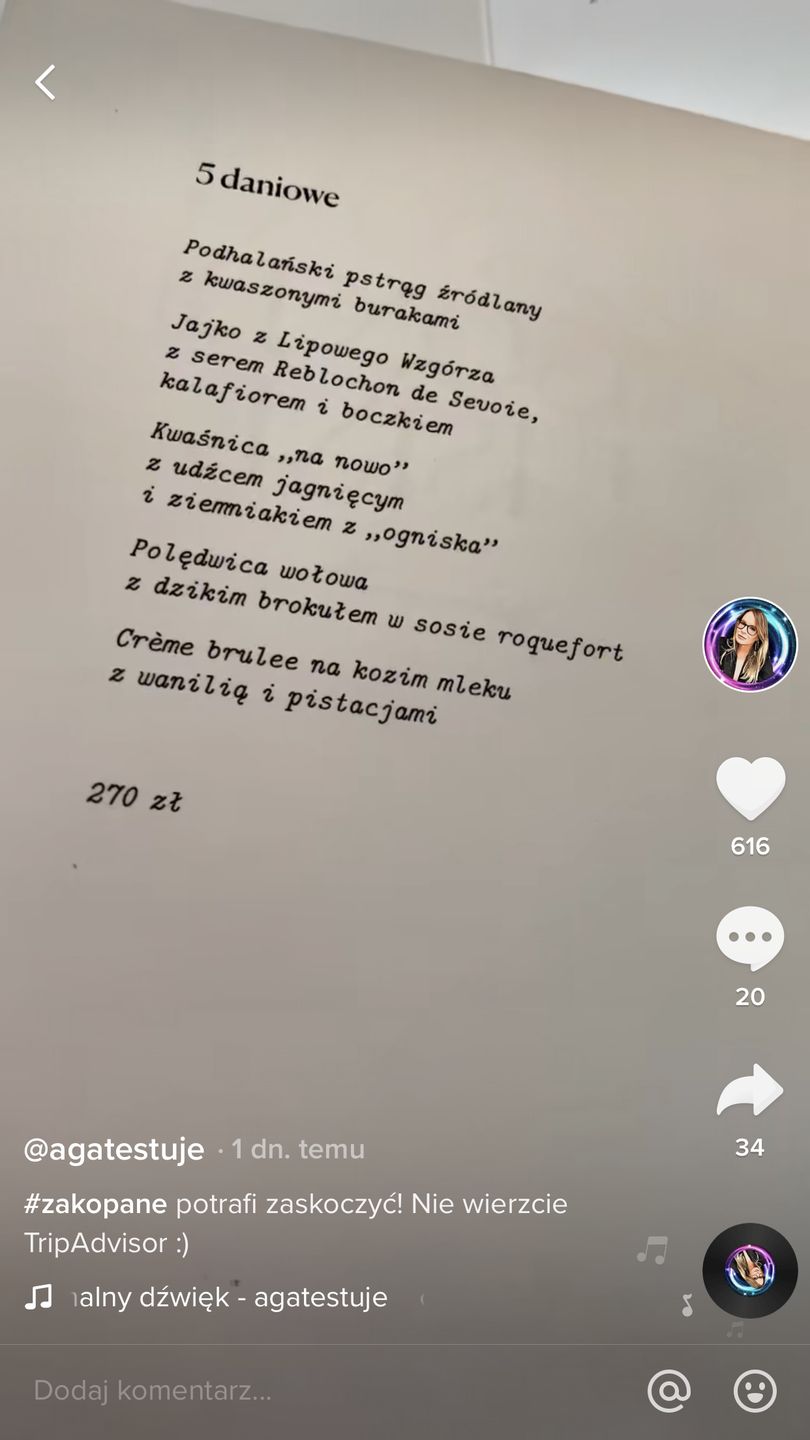 5 daniowe
Podhalański pstrąg źródlany
z kwaszonymi burakami
Jajko z Lipowego Wzgórza
z serem Reblochon de Sevoie,
kalafiorem i boczkiem
Kwaśnica „na nowo”
z udźcem jagnięcym
i ziemniakiem z „ogniska”
Polędwica wołowa
z dzikim brokułem w sosie roquefort
Crème brulee na kozim mleku
z wanilią i pistacjami
270 zł
616
20
34
@agatestuje · 1 dn. temu
#zakopane potrafi zaskoczyć! Nie wierzcie
TripAdvisor :)
alny dźwięk - agatestuje
Dodaj komentarz...